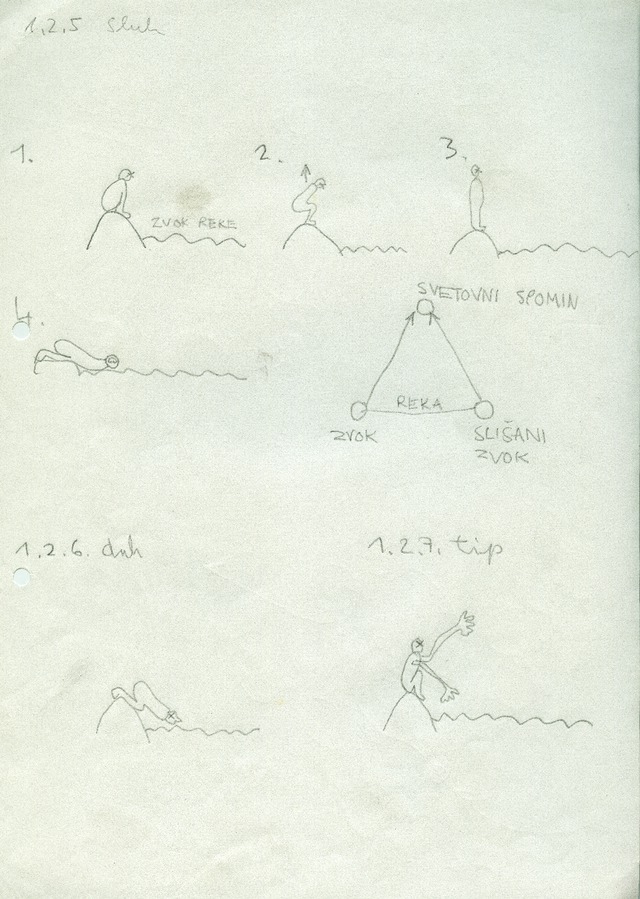 1.2.5 sluh
1.
2.
3.
ZVOK REKE
4.
SVETOVNI SPOMIN
REKA
ZVOK
SLIŠANI
ZVOK
1.2.6. duh
1.2.7. tip